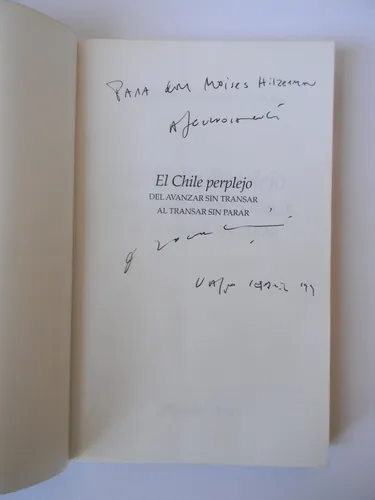 Para don Moises Hilzerman
Afectuosamente
El Chile perplejo
DEL AVANZAR SIN TRANSAR
AL TRANSAR SIN PARAR
Valpo '99